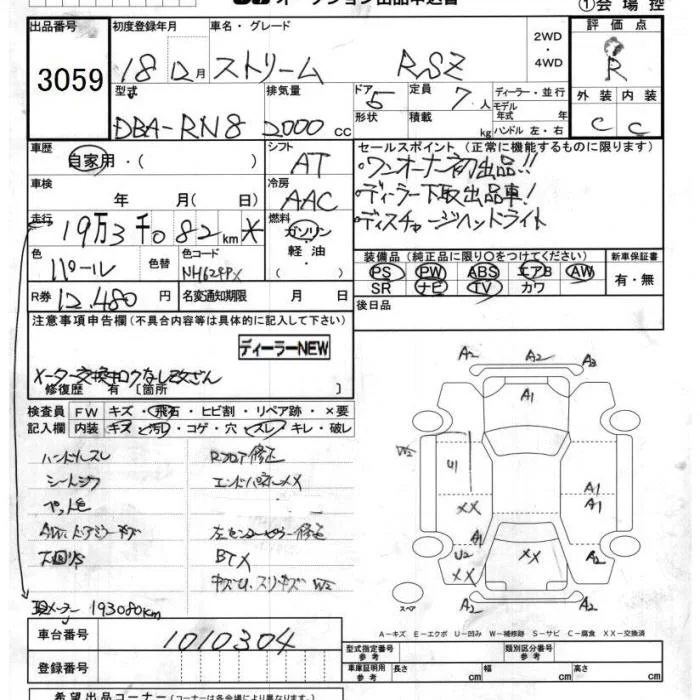 オークション出品申込書
①会場控
出品番号
3059
初度登録年月
車名・グレード
18 12月 ストリーム RSZ
2WD
・
4WD
評価点
R
外装 内装
C C
型式
DBA-RN8
排気量
2000 cc
ドア 5
形状
定員 7人
積載 kg
ディーラー・並行
モデル
年式 年
ハンドル 左・右
車歴
自家用・( )
シフト
AT
セールスポイント (正常に機能するものに限ります)
・ワンオーナー初出品!!
・ディーラー下取出品車!
・ディスチャージヘッドライト
車検
年 月( 日)
冷房
AAC
走行
19万3千082km *
燃料
ガソリン
軽油
( )
色
パール
色替
色コード
NH624PX
装備品(純正品に限り○をつけてください)
PS PW ABS エアB AW
SR ナビ TV カワ
新車保証書
有・無
R券 12,480円
名変通知期限 月 日
後日品
注意事項申告欄(不具合内容等は具体的に記入して下さい)
ディーラーNEW
メーター交換
修復歴 有 [箇所 ]
検査員 FW キズ・飛石・ヒビ割・リペア跡・×要
記入欄 内装 キズ・汚れ・コゲ・穴・スレ・キレ・破レ
ハンドルスレ
Rフロア修正
エンドパネルXX
左センターピラー修正
現メーター 193080km
A2 A2 A3
A1
W2
U1
XX
A1
A1
A1
U2
XX
XX
A2
A2 A2
スペア
A-キズ E-エクボ U-凹み W-補修跡 S-サビ C-腐食 XX-交換済
車台番号
1010304
登録番号
型式指定番号 番号
類別区分番号 番号
車庫証明用 参考 長さ cm 幅 cm 高さ cm
希望出品コーナー(コーナーは各会場により